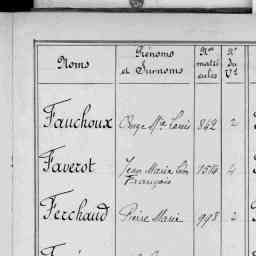 Noms
Prénoms et Surnoms
Nos matricules
No du Vol
Fauchoux Ange Mie Louis 842 2
Faverot Jean Marie
François 4
Ferchaud Pierre Marie 998 2